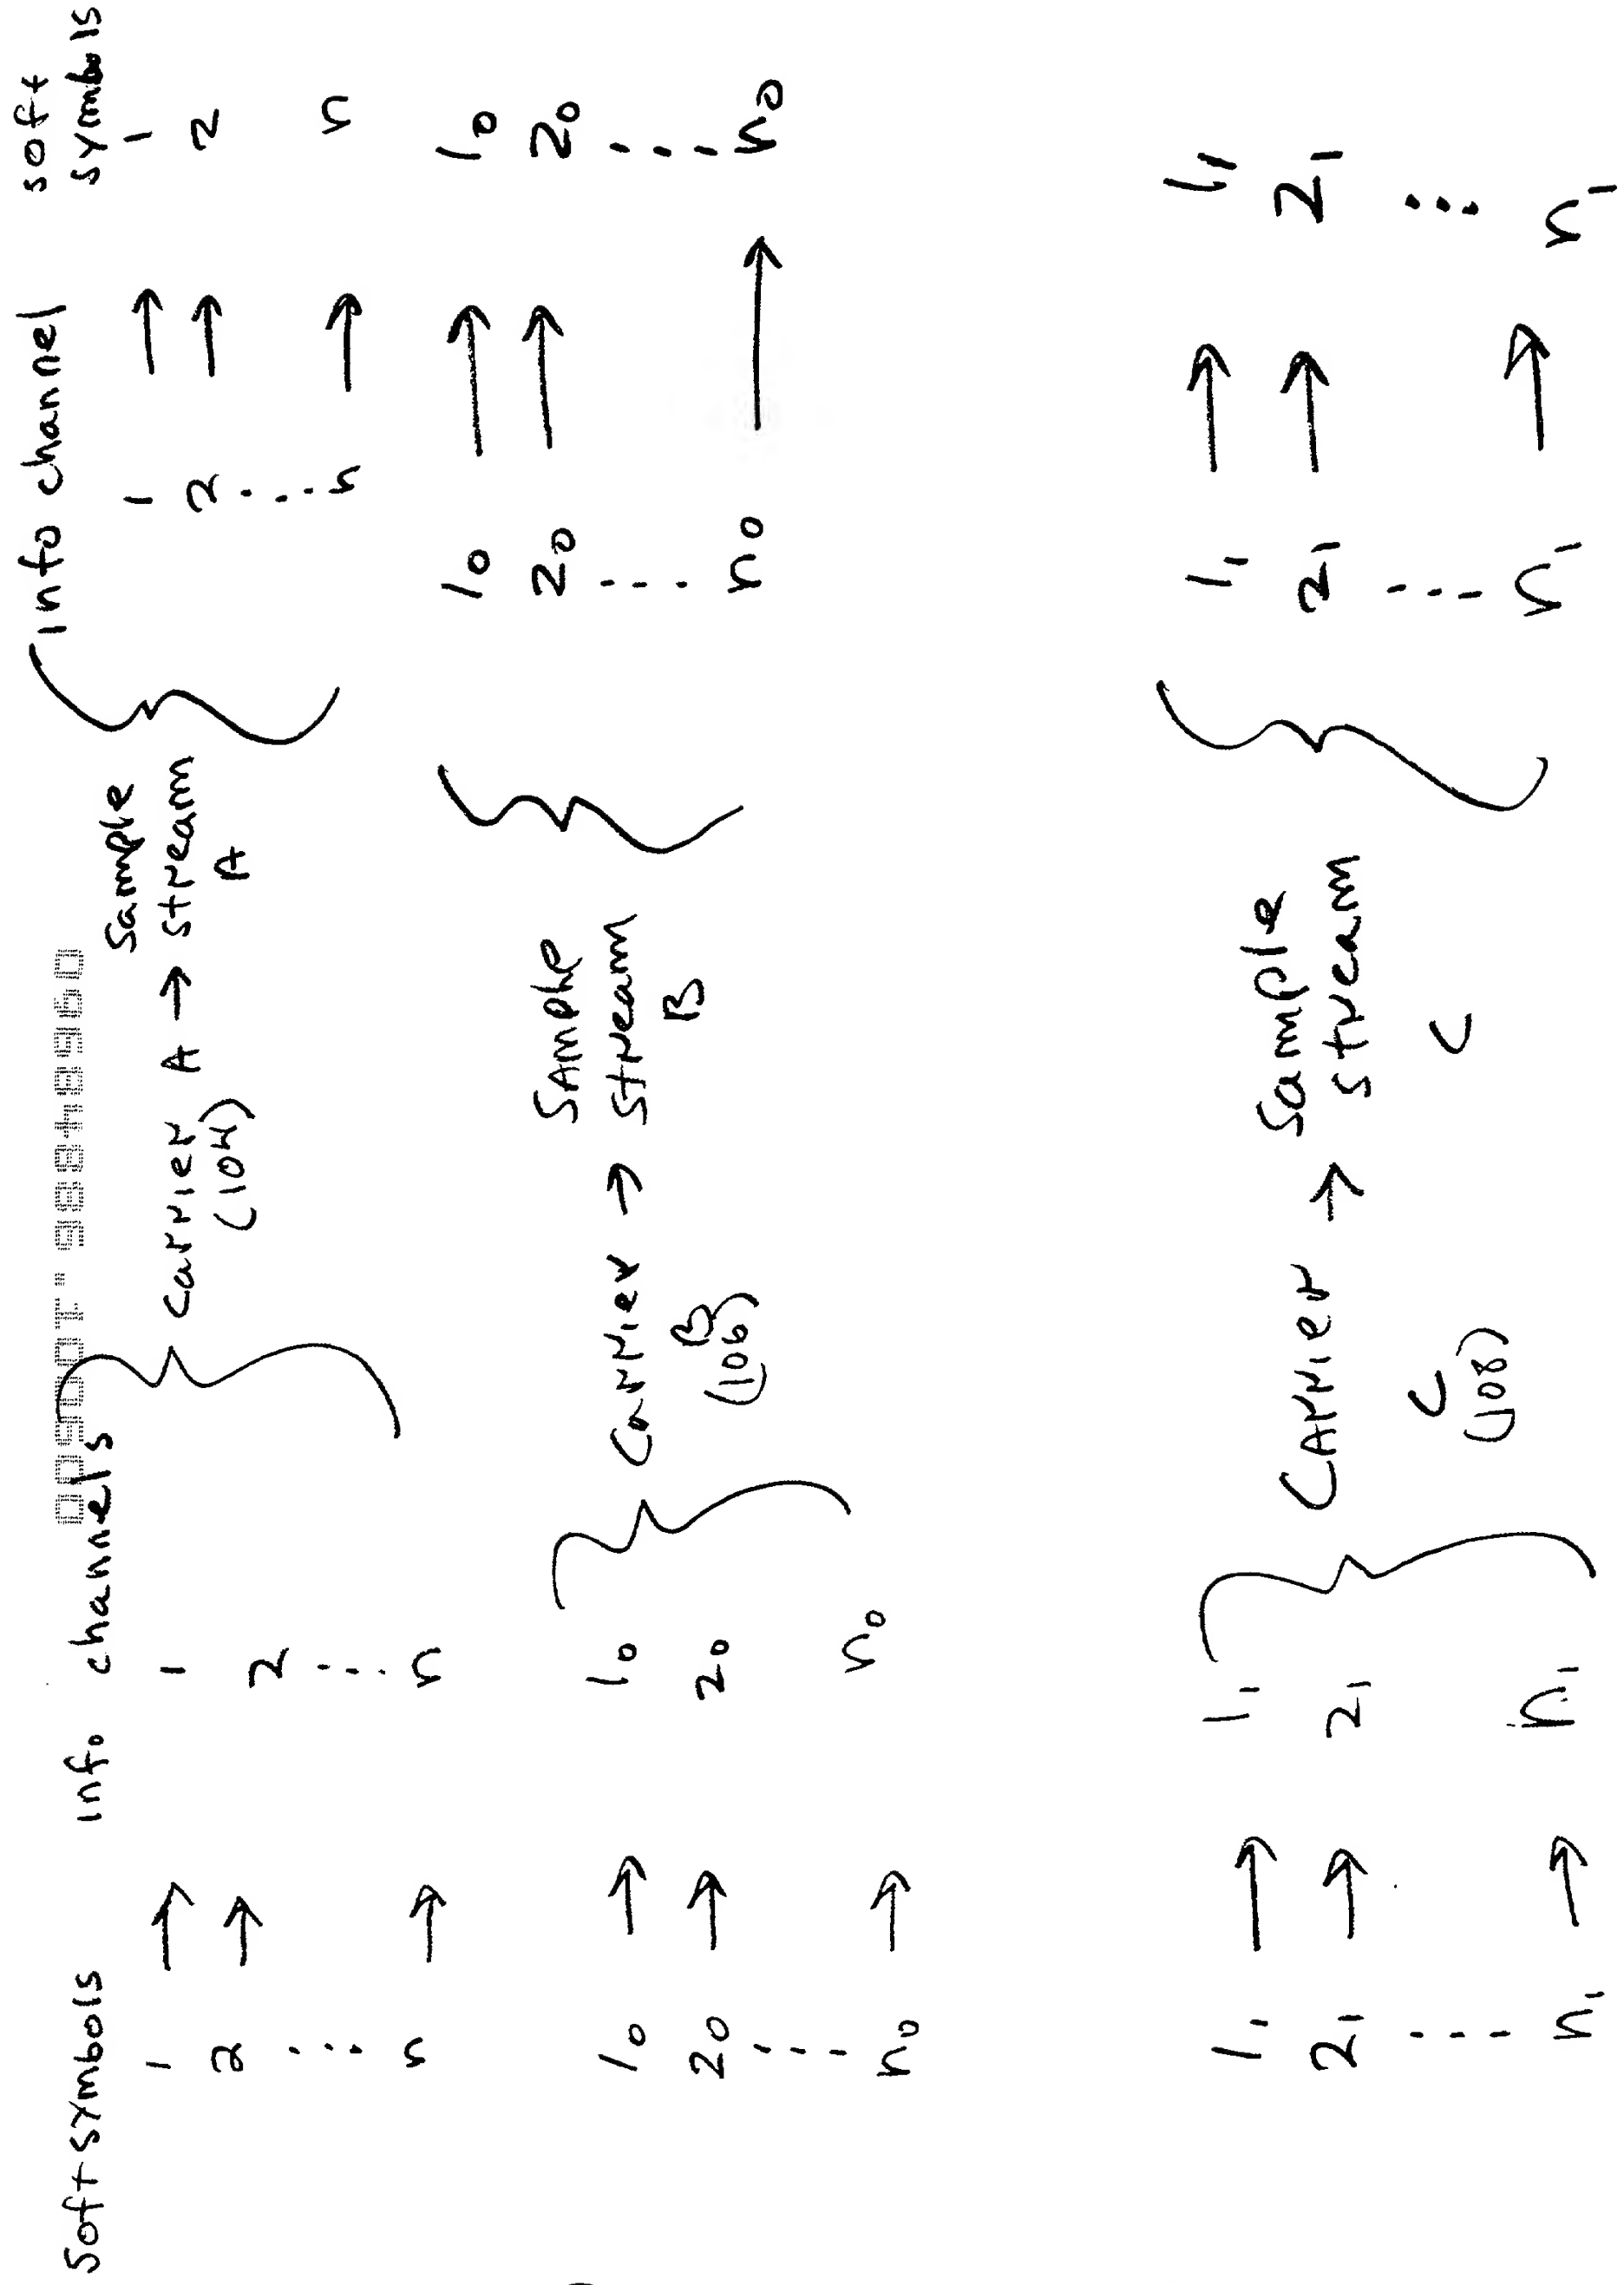 Soft symbols info channels info channel soft symbols
1 → 1
2 → 2
⋮ ⋮
n → n
Carrier A → Sample stream A
(104)
1 → 1
2 → 2
⋮
n → n
1₀ → 1₀
2₀ → 2₀
⋮
n₀ → n₀
Carrier → Sample stream
B B
(106)
1₀ → 1₀
2₀ → 2₀
⋮ ⋮
n₀ → n₀
1₁ → 1₁
2₁ → 2₁
⋮
n₁ → n₁
Carrier → Sample stream
C C
(108)
1₁ → 1₁
2₁ → 2₁
⋮ ⋮
n₁ → n₁